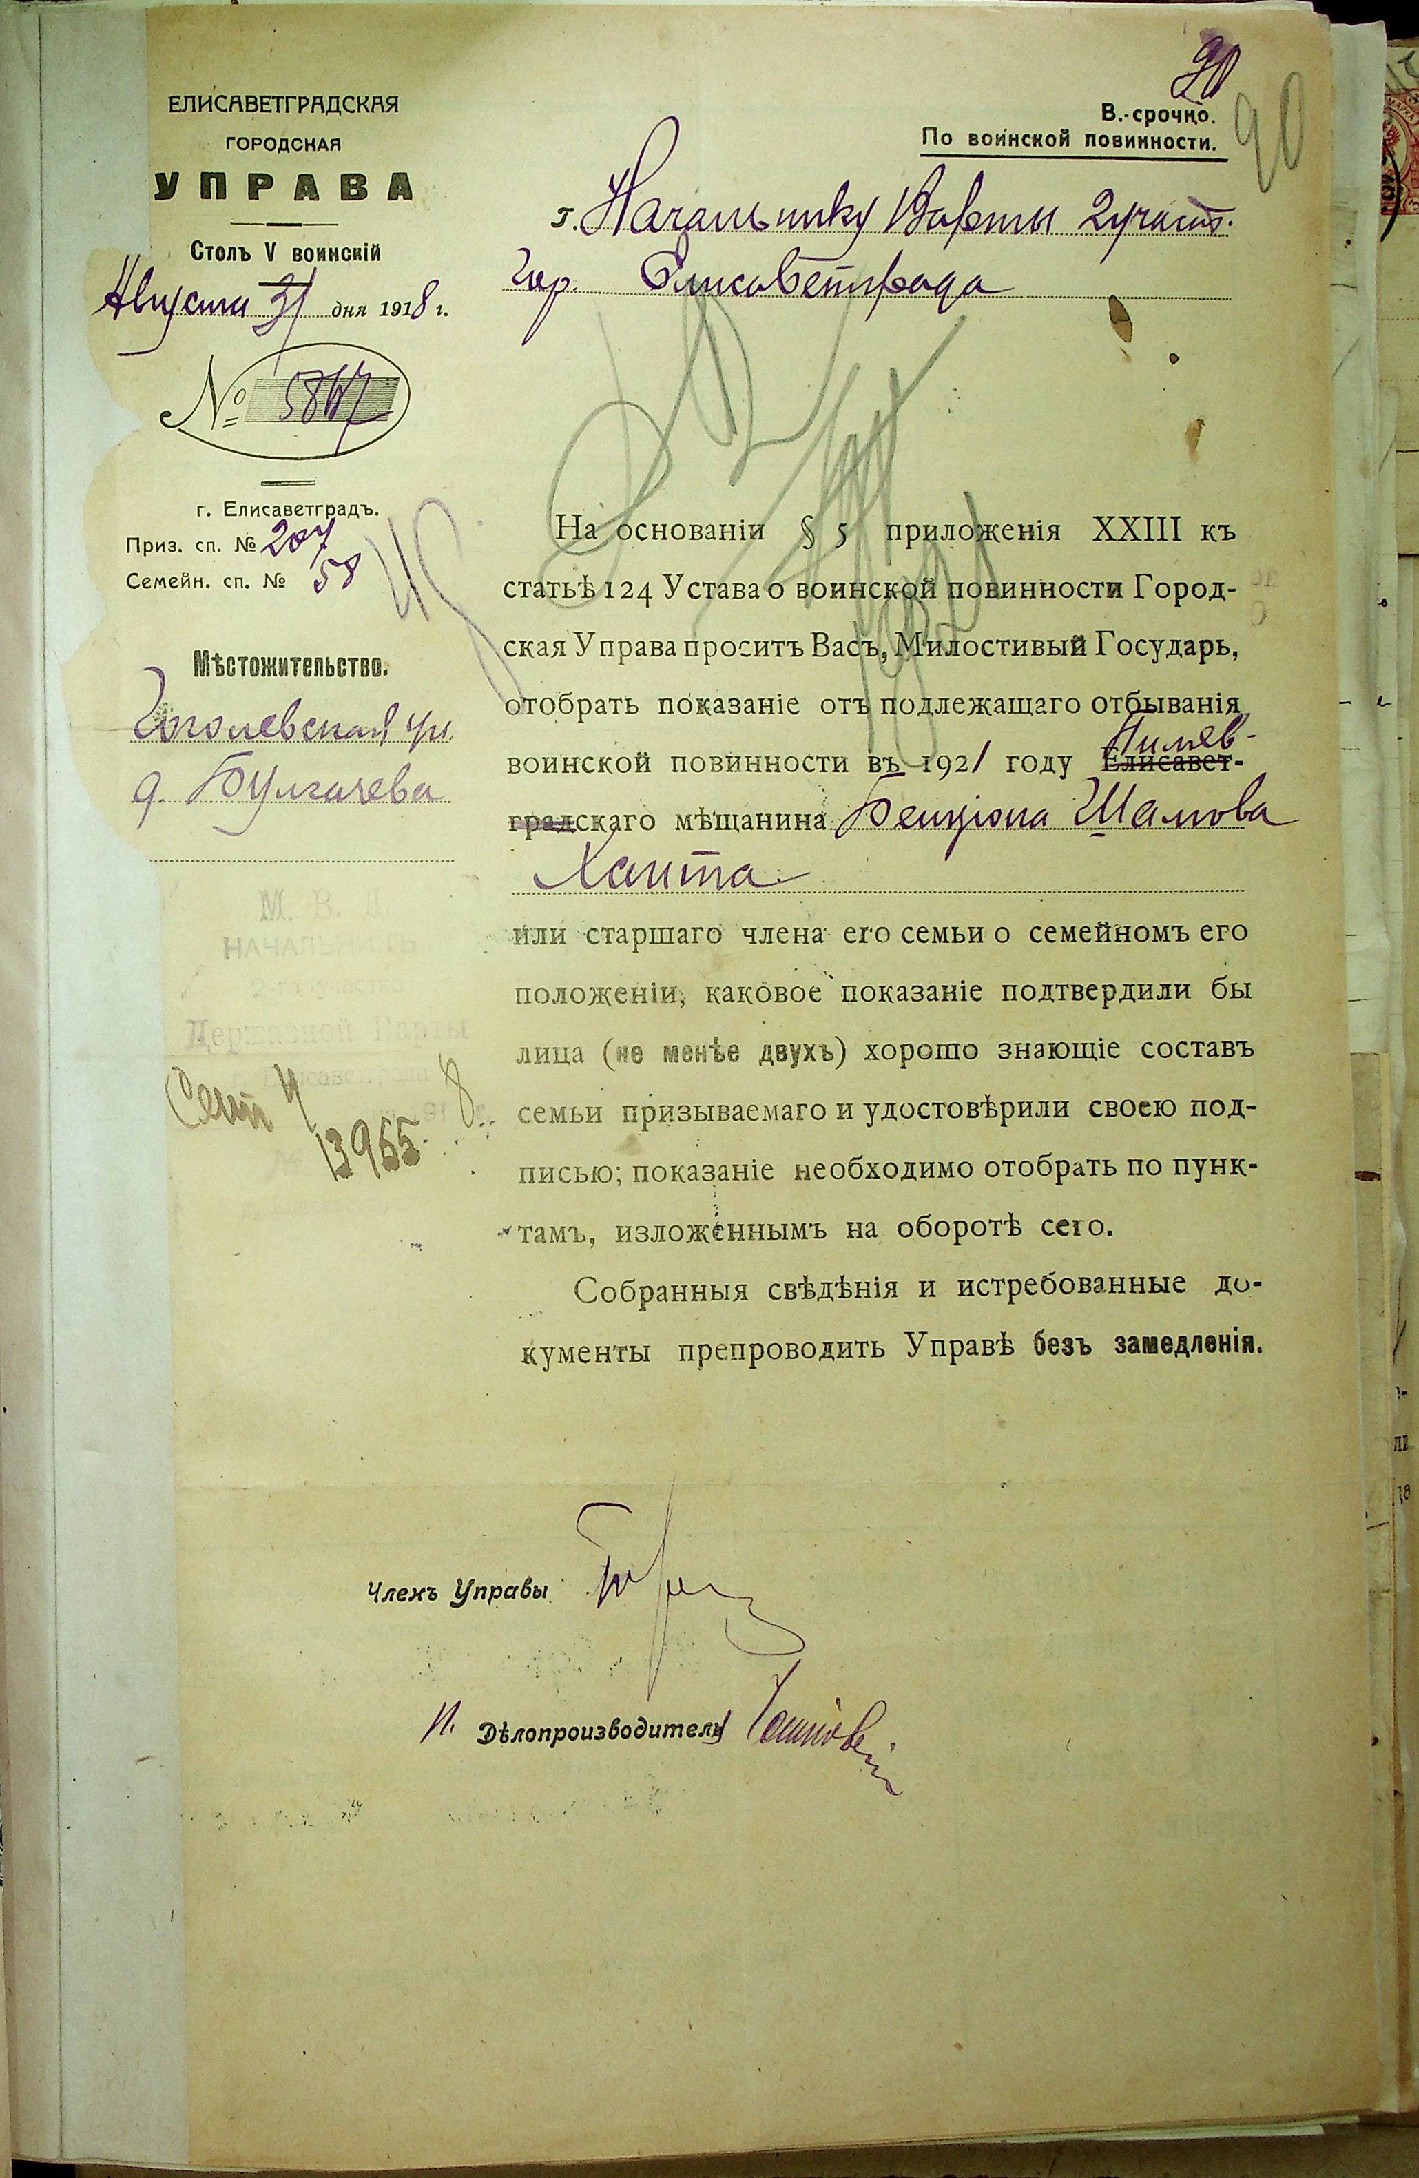 90
В.-срочно.
90
По воинской повинности.
ЕЛИСАВЕТГРАДСКАЯ
ГОРОДСКАЯ
УПРАВА
Столъ V воинскій
Августа 31 дня 1918 г.
№ 5847
г. Елисаветградъ.
Приз. сп. № 204
Семейн. сп. № 58
Мѣстожительство.
Гоголевская ул.
д. Булгачева
М. В. Д.
НАЧАЛЬНИКЪ
2-го участка
Державной Варты
Сент 4 8
13955
г. Начальнику Варты 2 участ.
гор. Елисаветграда
На основаніи § 5 приложенія XXIII къ
статьѣ 124 Устава о воинской повинности Город-
ская Управа проситъ Васъ, Милостивый Государь,
отобрать показаніе отъ подлежащаго отбыванія
воинской повинности въ 1921 году Елисавет-
градскаго мѣщанина Бенціона Шамова
Хаита
или старшаго члена его семьи о семейномъ его
положеніи, каковое показаніе подтвердили бы
лица (не менѣе двухъ) хорошо знающіе составъ
семьи призываемаго и удостовѣрили своею под-
писью; показаніе необходимо отобрать по пунк-
тамъ, изложеннымъ на оборотѣ сего.
Собранныя свѣдѣнія и истребованные до-
кументы препроводить Управѣ безъ замедленія.
Членъ Управы
И. Дѣлопроизводителя